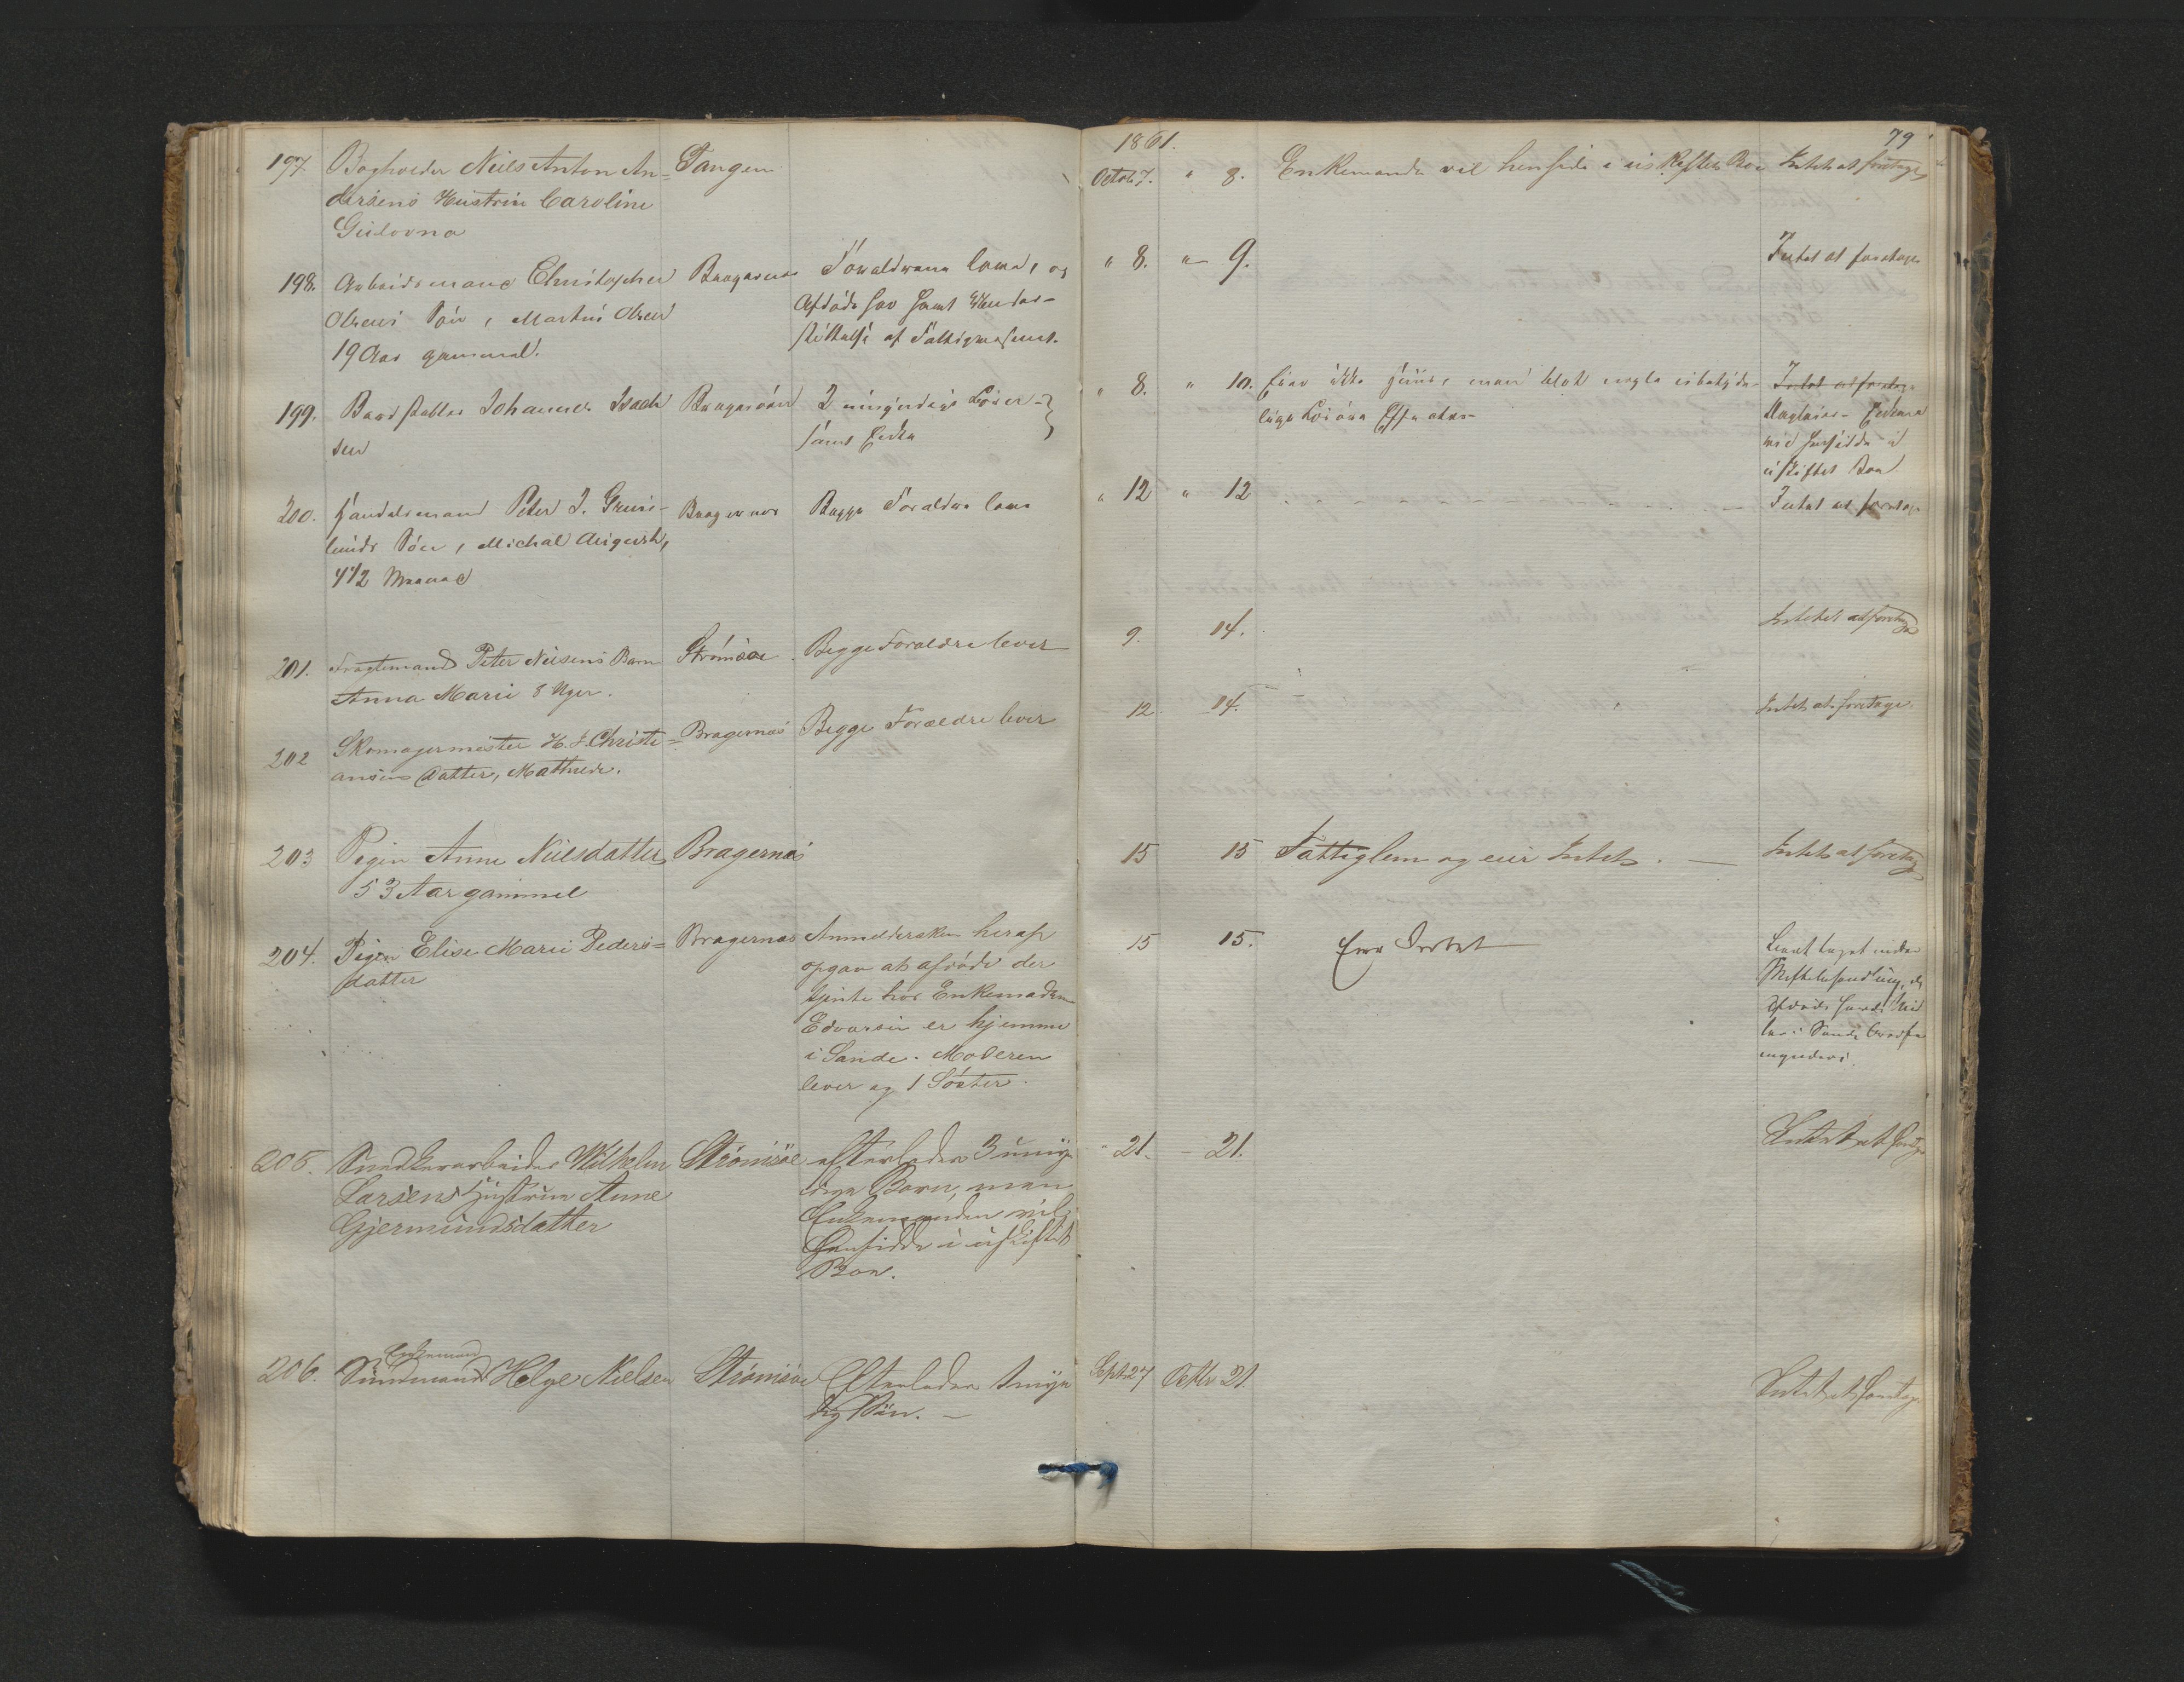 1861.
79
197. Bogholder Niels Anton An=
dersens Hustrue Caroline
Gulovna
Tangen
Octob 7. " 8. Enkemanden vil hensidde i uskiftet Boe
Intet at foretage
198. Arbeidsmand Christopher
Olsens Søn, Martin Olsen
19 Aar gammel.
Bragernæs
Forældrene leve, og
Afdøde
af Fattigvæsenet.
" 8. " 9.
Intet at foretage
199. Johannes Isach
sen
Bragernæs
2 umyndige Børn
samt Enke
" 8. " 10. Eier ikke Huus, men blot nogle ubetyde-
lige Løsøre Effecter
Intet at foretage
Enken
vil hensidde i
uskiftet Boe
200. Handelsmand Peter J. Grøn-
lunds Søn, Michal August,
4 1/2 Maaned
Bragernæs
Begge Forældre leve
" 12 " 12
Intet at foretage
201. Fragtemand Peter Nielsens Barn
Anna Marie 8 Uger.
Strømsøe
Begge Forældre lever
9. 14.
Intet at foretage
202 Skomagermester H. J. Christi=
ansens Datter, Mathilde.
Bragernæs
Begge Forældre lever
12. 14.
Intet at foretage.
203 Pigen Anne Nielsdatter
53 Aar gammel
Bragernæs
15 15 Fattiglem og eier Intet. —
Intet at foretage
204. Pigen Elise Marie Peders=
datter
Bragernæs
Anmeldersken heraf
opgav at afdøde der
tjente hos Enkemadam
Edvarsen er hjemme
i Sande. Moderen
lever og 1 Søster.
15 15.
under
Skiftebehandling, da
Afdøde havde
i Sande
205. Snedkerarbeider Wilhelm
Larsens Hustrue Anne
Gjermundsdatter
Strømsøe
efterlader 3 umyn
dige Børn, men
Enkemanden vil
hensidde i uskiftet
Boe.
" 21. - 21.
Intet at foretage
206. Enkemand
Sundmand Helge Nielsen
Strømsøe
Efterlader 1 myn
dig Søn. —
Septr 27 Octbr 21.
Intet at foretage